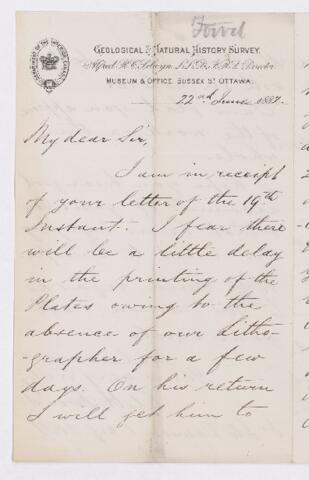 Ford
GEOLOGICAL & NATURAL HISTORY SURVEY.
Alfred R. C. Selwyn L.L.D. F.R.S. Director
MUSEUM & OFFICE, SUSSEX ST OTTAWA.
22nd June 1887.
My dear Sir,
I am in receipt
of your letter of the 19th
Instant. I fear there
will be a little delay
in the printing of the
Plates owing to the
absence of our Litho-
-grapher for a few
days. On his return
I will get him to